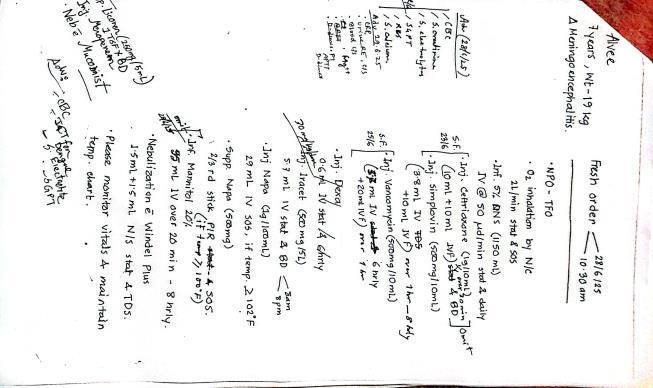 Alvee
7 years, Wt-19 kg
Δ Meningoencephalitis.
Fresh order
28/6/25
10.30 am
• NPO - TFO
• O2 inhalation by N/c
2L/min stat & SOS
• Inf. 5% DNS (1150 mL)
IV @ 50 µd/min stat & daily
S.F. 23/6
• Inj. Ceftriaxone (1g/10mL)
(10mL + 10mL IVF) & BD
omit
• Inj. Simplovin (500mg/10mL)
(3.8 mL IV
+10 mL IVF) over 1 hr - 8 hrly
S.F. 25/6
• Inj. Vancomycin (500mg/10mL)
mL IV 6 hrly
+20mL IVF) over 1 hr
• Inj. Dexa
0.6 mL IV stat & 6hrly
• Inj Iracet (500mg/5L)
5.7 mL IV stat & BD
8am
8pm
• Inj Napa (1g/100mL)
29 mL IV SOS. if temp ≥ 102°F
• Supp Napa (500mg)
2/3 rd stick P/R stat & SOS.
(if temp > 100°F)
omit
• Inf. Mannitol 20%
95 mL IV over 20 min - 8 hrly.
• Nebulization c̄ Windel Plus
1.5mL + 1.5 mL N/S stat & TDS.
• Please monitor vitals & maintain
temp. chart.
Adv (28/6/25)
CBC
S. creatinine
S. electrolytes
SGPT
RBS
S. calcium
Adv 29.6.25
Urine R/E, C/S
Blood C/S
CXR
Meropenem
BD
• Neb c̄ Mucomist
Adv:
- CBC